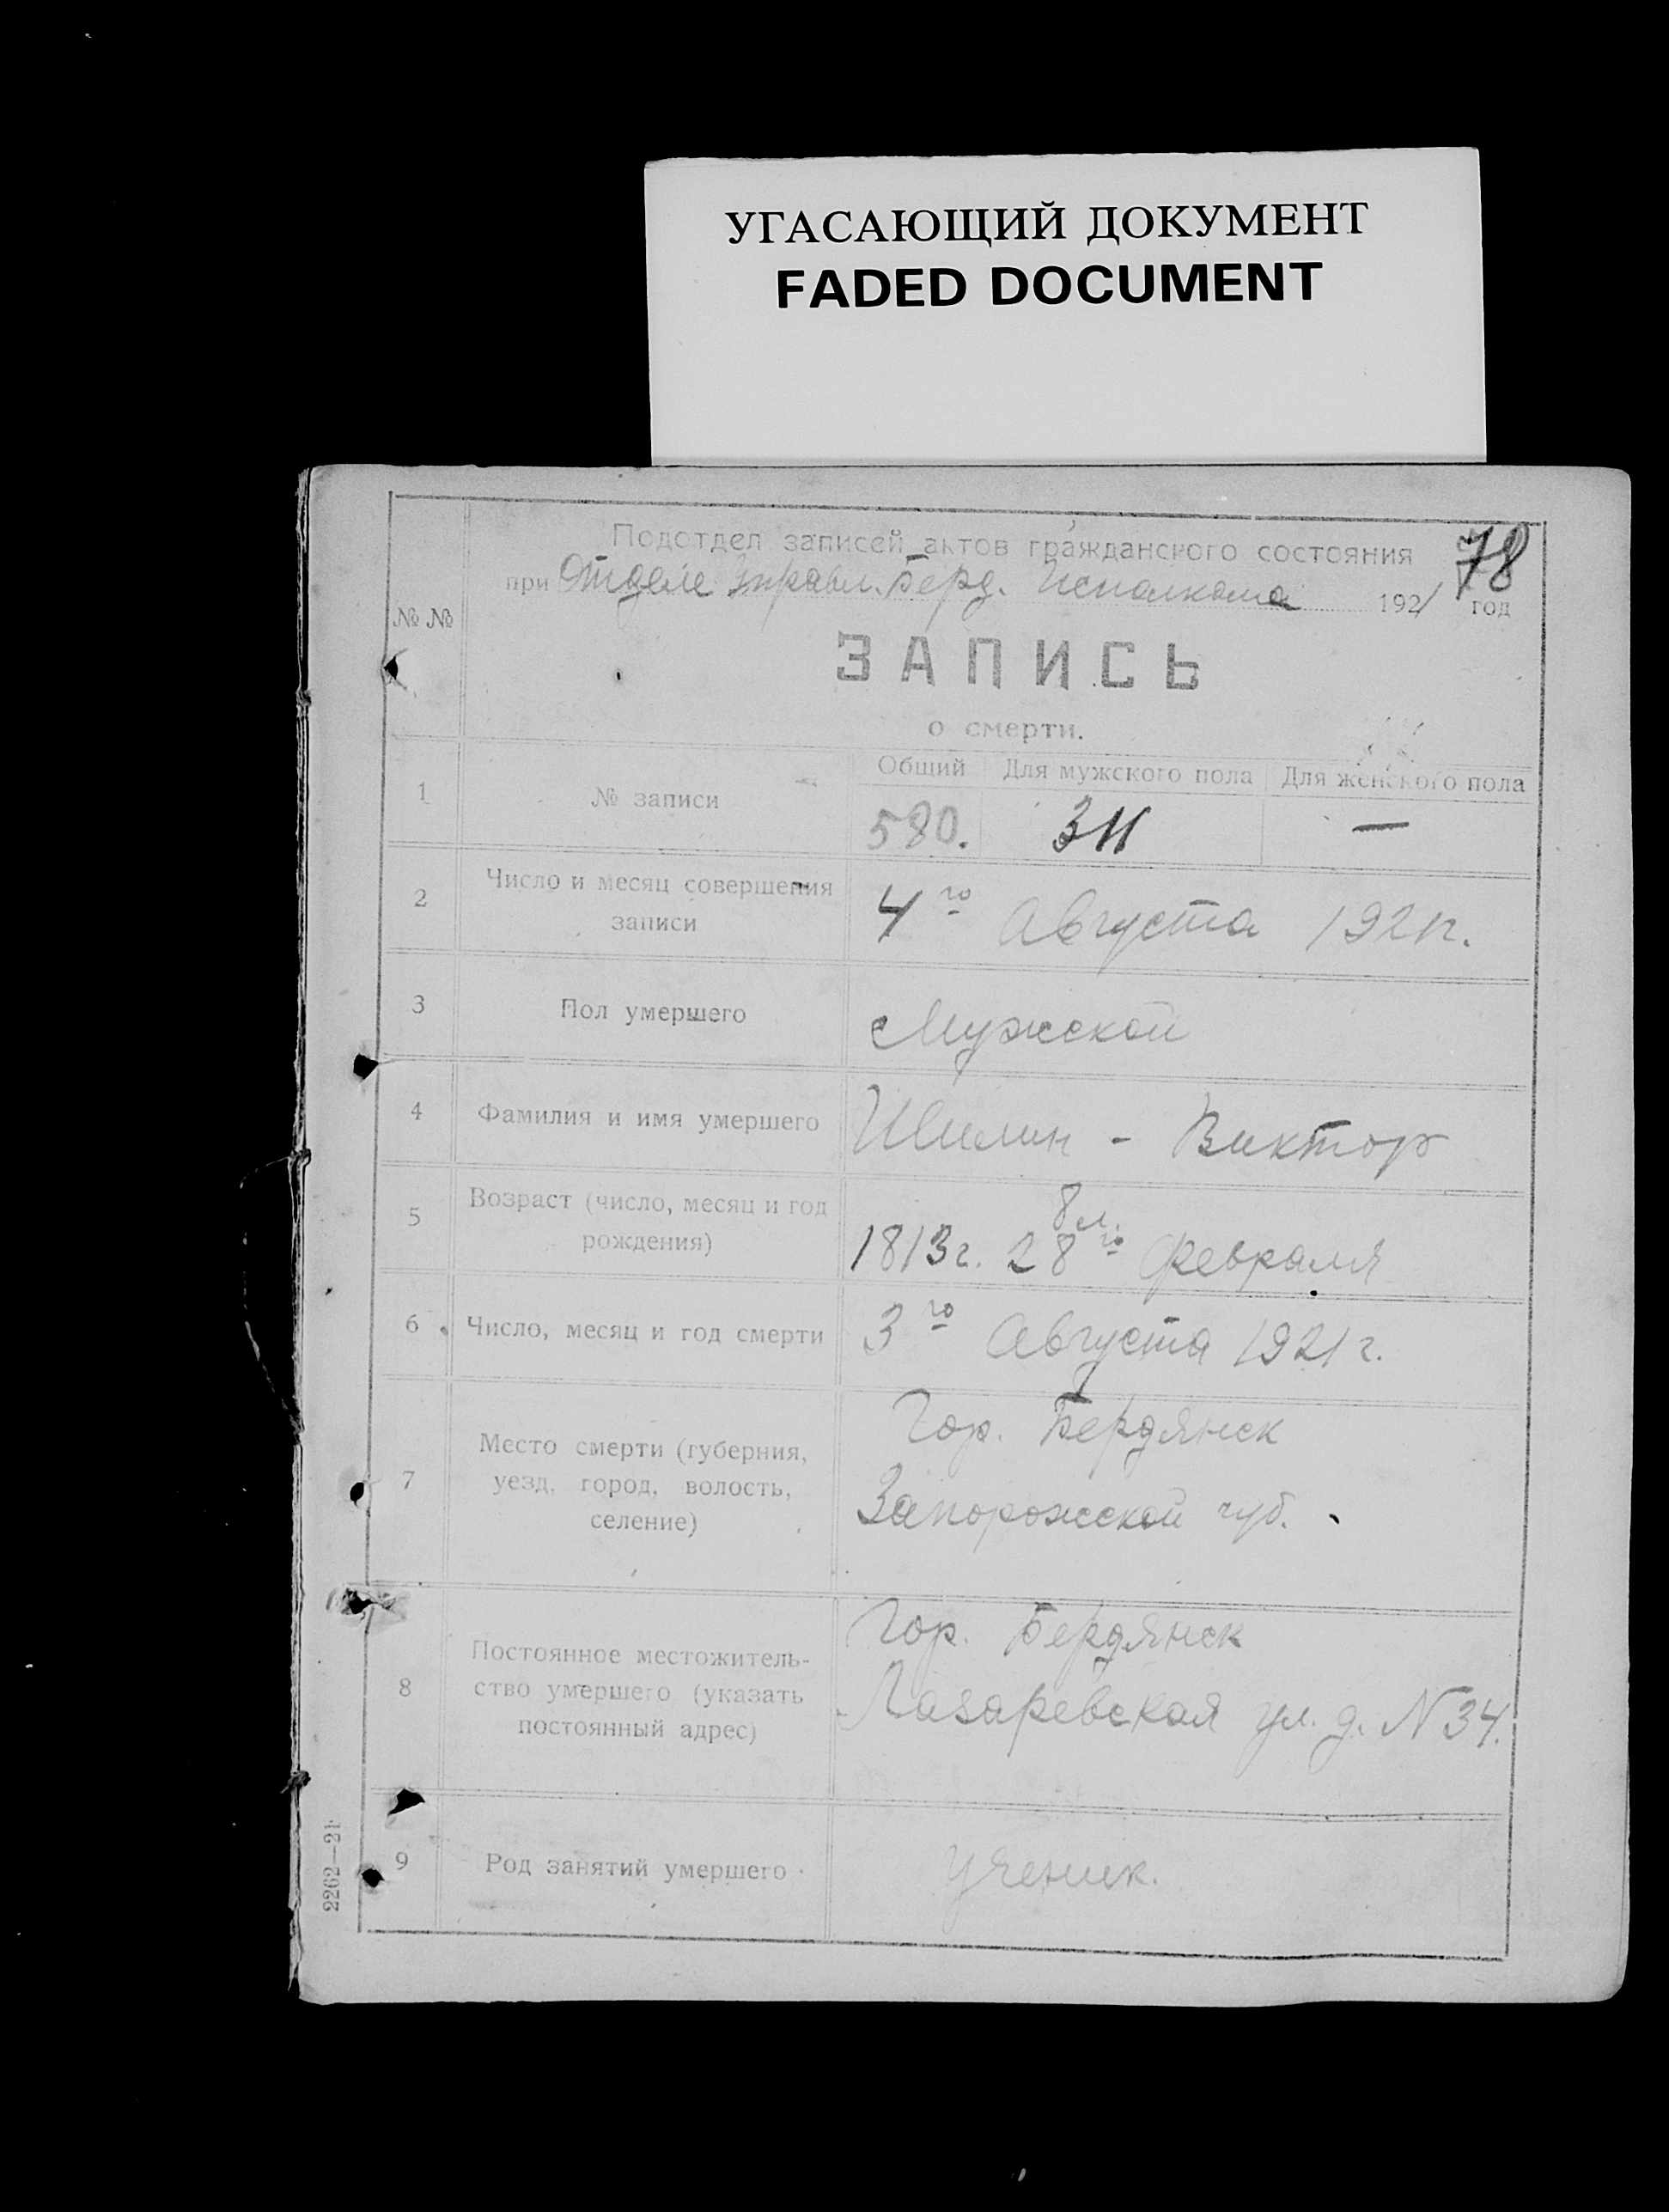 УГАСАЮЩИЙ ДОКУМЕНТ
FADED DOCUMENT
78
Подотдел записей актов гражданского состояния
при Отделе Управл. Берд. Исполкома 1921 год
№ №
ЗАПИСЬ
о смерти.
Общий Для мужского пола Для женского пола
1 № записи 580. 311 —
2 Число и месяц совершения
записи
4го Августа 1921г.
3 Пол умершего Мужской
4 Фамилия и имя умершего - Виктор
5 Возраст (число, месяц и год
рождения)
8 л.
1813г. 28го февраля
6 Число, месяц и год смерти 3го Августа 1921г.
7 Место смерти (губерния,
уезд, город, волость,
селение)
Гор. Бердянск
Запорожской губ.
8 Постоянное местожитель-
ство умершего (указать
постоянный адрес)
Гор. Бердянск
Лазаревская ул. д. N 34.
9 Род занятий умершего ученик.
2262—21